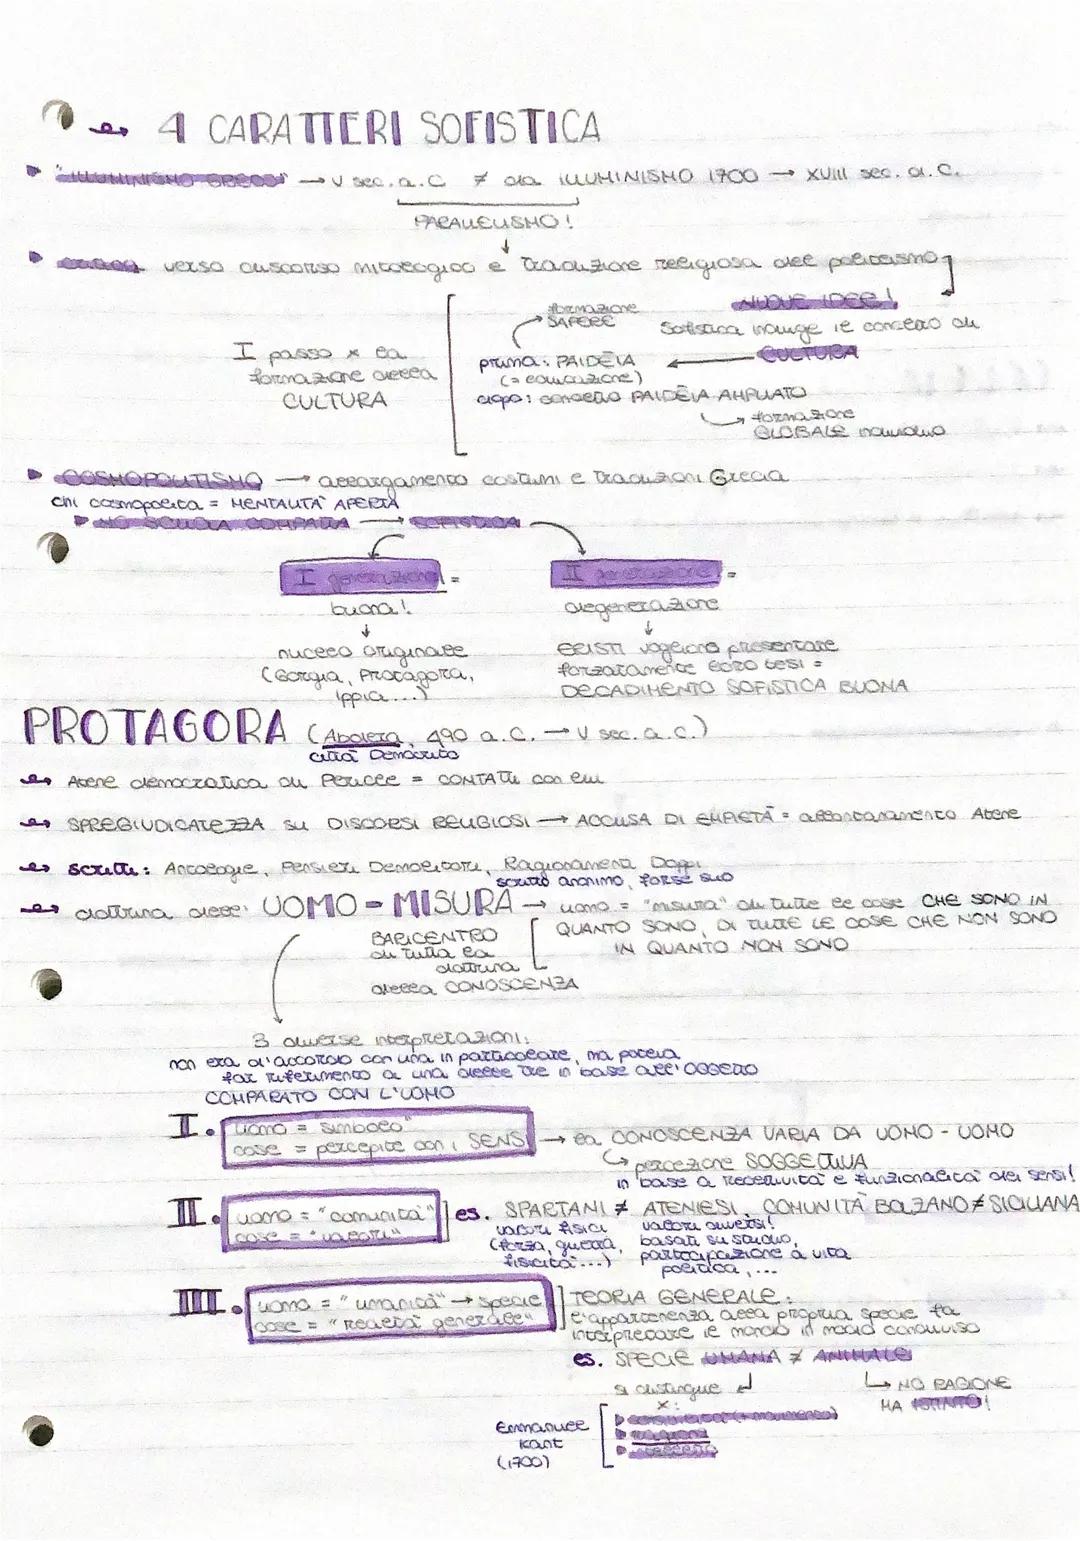 4 CARATTERI SOFISTICA
"ILLUMINISMO GRECO" → V sec. a.C ≠ da ILLUMINISMO 1700 → XVIII sec. d.C.
PARALLELISMO!
critica verso discorso mitologico e tradizione religiosa del politeismo
NUOVE IDEE!
formazione
SAPERE
Sofistica incluige il concetto di
I passo x la
prima: PAIDÈIA ← CULTURA
formazione della
(= educazione)
CULTURA
dopo: concetto PAIDÈIA AMPLIATO
formazione
GLOBALE individuo
COSMOPOLITISMO → allargamento costumi e tradizioni Grecia
chi cosmopolita = MENTALITÀ APERTA
NO SCUOLA COMPATTA → SOFISTICA
I generazione = II generazione =
buona! degenerazione
↓ ↓
nucleo originale ERISTI vogliono presentare
(Gorgia, Protagora, forzatamente loro tesi =
Ippia...) DECADIMENTO SOFISTICA BUONA
PROTAGORA (Abdera, 490 a.C. → V sec. a.C.)
città Democrito
Atene democratica di Pericle = CONTATTI con lui
SPREGIUDICATEZZA su DISCORSI RELIGIOSI → ACCUSA DI EMPIETÀ = allontanamento Atene
Scritti: Antologie, Pensieri Demolitori, Ragionamenti Doppi
scritto anonimo, forse suo
dottrina dell' UOMO - MISURA → uomo = "misura" di tutte le cose CHE SONO IN
BARICENTRO QUANTO SONO, DI TUTTE LE COSE CHE NON SONO
di tutta la IN QUANTO NON SONO
dottrina
della CONOSCENZA
3 diverse interpretazioni:
non era d'accordo con una in particolare, ma poteva
far riferimento a una delle tre in base all'OGGETTO
COMPARATO CON L'UOMO
I. uomo = "simbolo"
cose = percepite con i SENSI → la CONOSCENZA VARIA DA UOMO - UOMO
percezione SOGGETTIVA
in base a recettività e funzionalità dei sensi!
II. uomo = "comunità" es. SPARTANI ≠ ATENIESI, COMUNITÀ BOLZANO ≠ SICILIANA
cose = "valori" valori fisici valori diversi!
(forza, guerra, basati su studio,
fisicità...) partecipazione a vita
politica,...
III. uomo = "umanità" → specie TEORIA GENERALE:
cose = "realtà generale" l'appartenenza alla propria specie fa
interpretare il mondo in modo condiviso
es. SPECIE UMANA ≠ ANIMALE
si distingue NO RAGIONE
x: HA ISTINTO!
Emmanuel
Kant ragione
(1700) intelletto